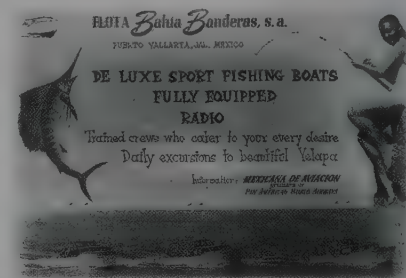 FLOTA Bahia Banderas, s.a.
PUERTO VALLARTA, JAL. MEXICO
DE LUXE SPORT FISHING BOATS
FULLY EQUIPPED
RADIO
Trained crews who cater to your every desire
Daily excursions to beautiful Yelapa
Information: MEXICANA DE AVIACION
AFFILIATE OF
PAN AMERICAN WORLD AIRWAYS